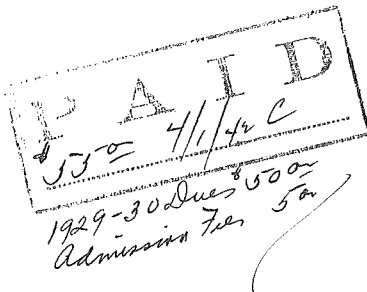 PAID
$55 00 4/1/42 C
1929-30 Dues $50 00
Admission Fee 5 00